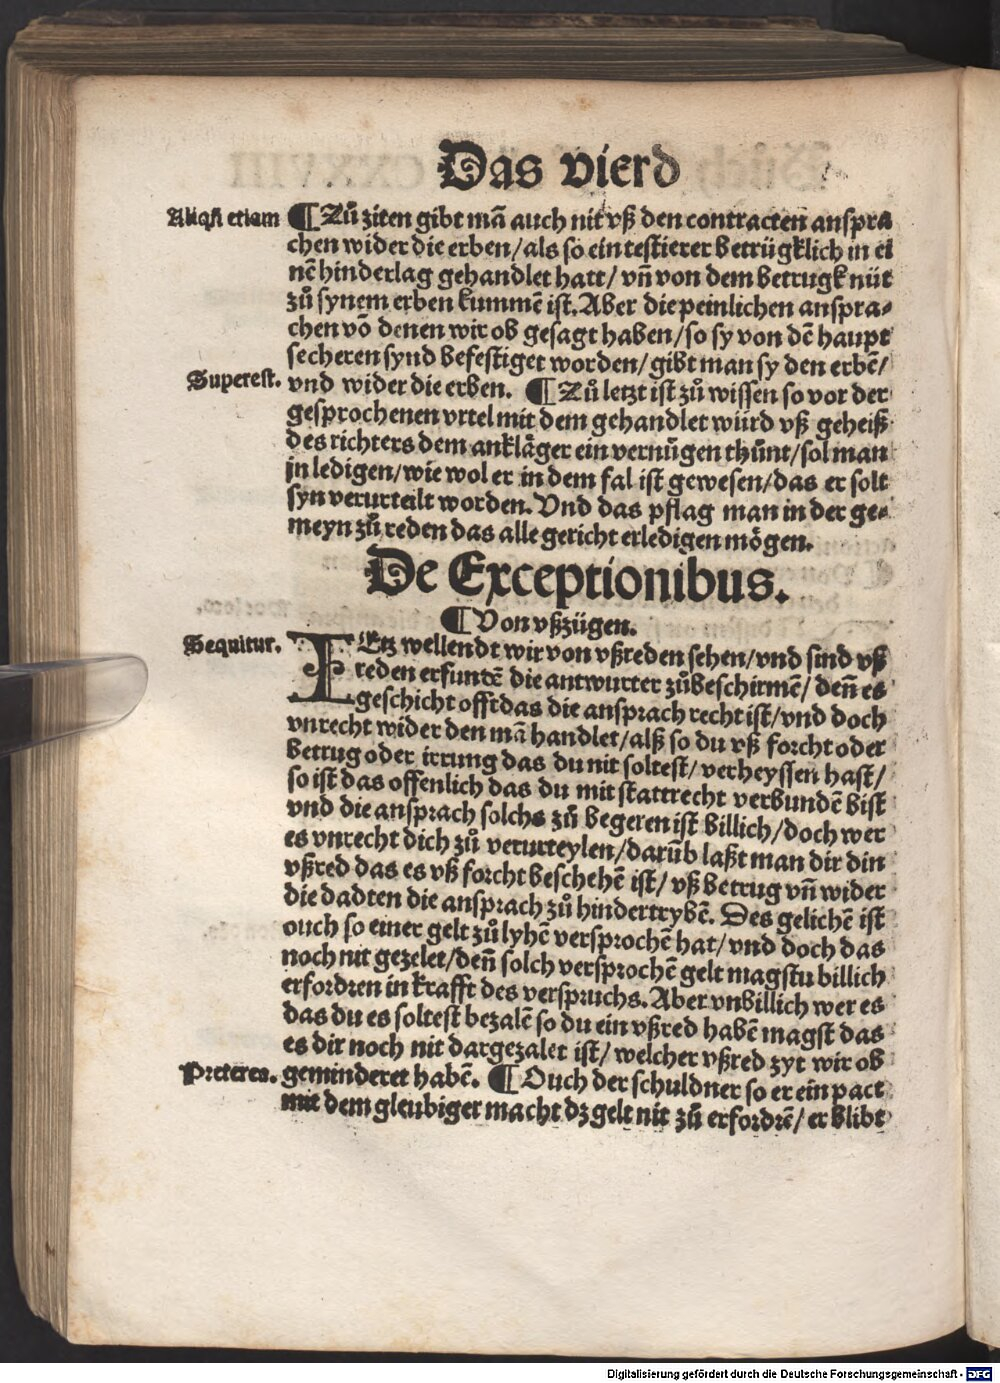 Das vierd
Aliqñ etiam ¶ Zů ziten gibt mã auch nit vß den contracten anspra
chen wider die erben/ als so ein testierer betrügklich in ei
nẽ hinderlag gehandlet hatt/ vñ von dem betrugk nüt
zů synem erben kummẽ ist. Aber die peinlichen anspra⸗
chen võ denen wir ob gesagt haben/ so sy von dẽ haupt
secheren synd befestiget worden/ gibt man sy den erbẽ/
Superest. vnd wider die erben. ¶ Zů letzt ist zů wissen so vor der
gesprochenen vrtel mit dem gehandlet würd vß geheiß
des richters dem ankläger ein vernůgen thůnt/ sol man
jn ledigen/ wie wol er in dem fal ist gewesen/ das er solt
syn verurteilt worden. Vnd das pflag man in der ge⸗
meyn zů reden das alle gericht erledigen mögen.
De Exceptionibus.
¶ Von vßzügen.
Sequitur. IEtz wellendt wir von vßreden sehen/ vnd sind vß
reden erfundẽ die antwurter zůbeschirmẽ/ deñ es
geschicht offt das die ansprach recht ist/ vnd doch
vnrecht wider den mã handlet/ alß so du vß forcht oder
betrug oder irrung das du nit soltest/ verheyssen hast/
so ist das offenlich das du mit stattrecht verbundẽ bist
vnd die ansprach solchs zů begeren ist billich/ doch wer
es vnrecht dich zů verurteylen/ darũb laßt man dir din
vßred das es vß forcht beschehẽ ist/ vß betrug vñ wider
die dadten die ansprach zů hindertrybẽ. Des gelichẽ ist
ouch so einer gelt zů lyhẽ versprochẽ hat/ vnd doch das
noch nit gezelet/ deñ solch versprochẽ gelt magstu billich
erfordren in krafft des verspruchs. Aber vnbillich wer es
das du es soltest bezalẽ so du ein vßred habẽ magst das
es dir noch nit dargezalet ist/ welcher vßred zyt wir ob
Preterea. geminderet habẽ. ¶ Ouch der schuldner so er ein pact
mit dem gleubiger macht dz gelt nit zů erfordrẽ/ er blibt
Digitalisierung gefördert durch die Deutsche Forschungsgemeinschaft - DFG